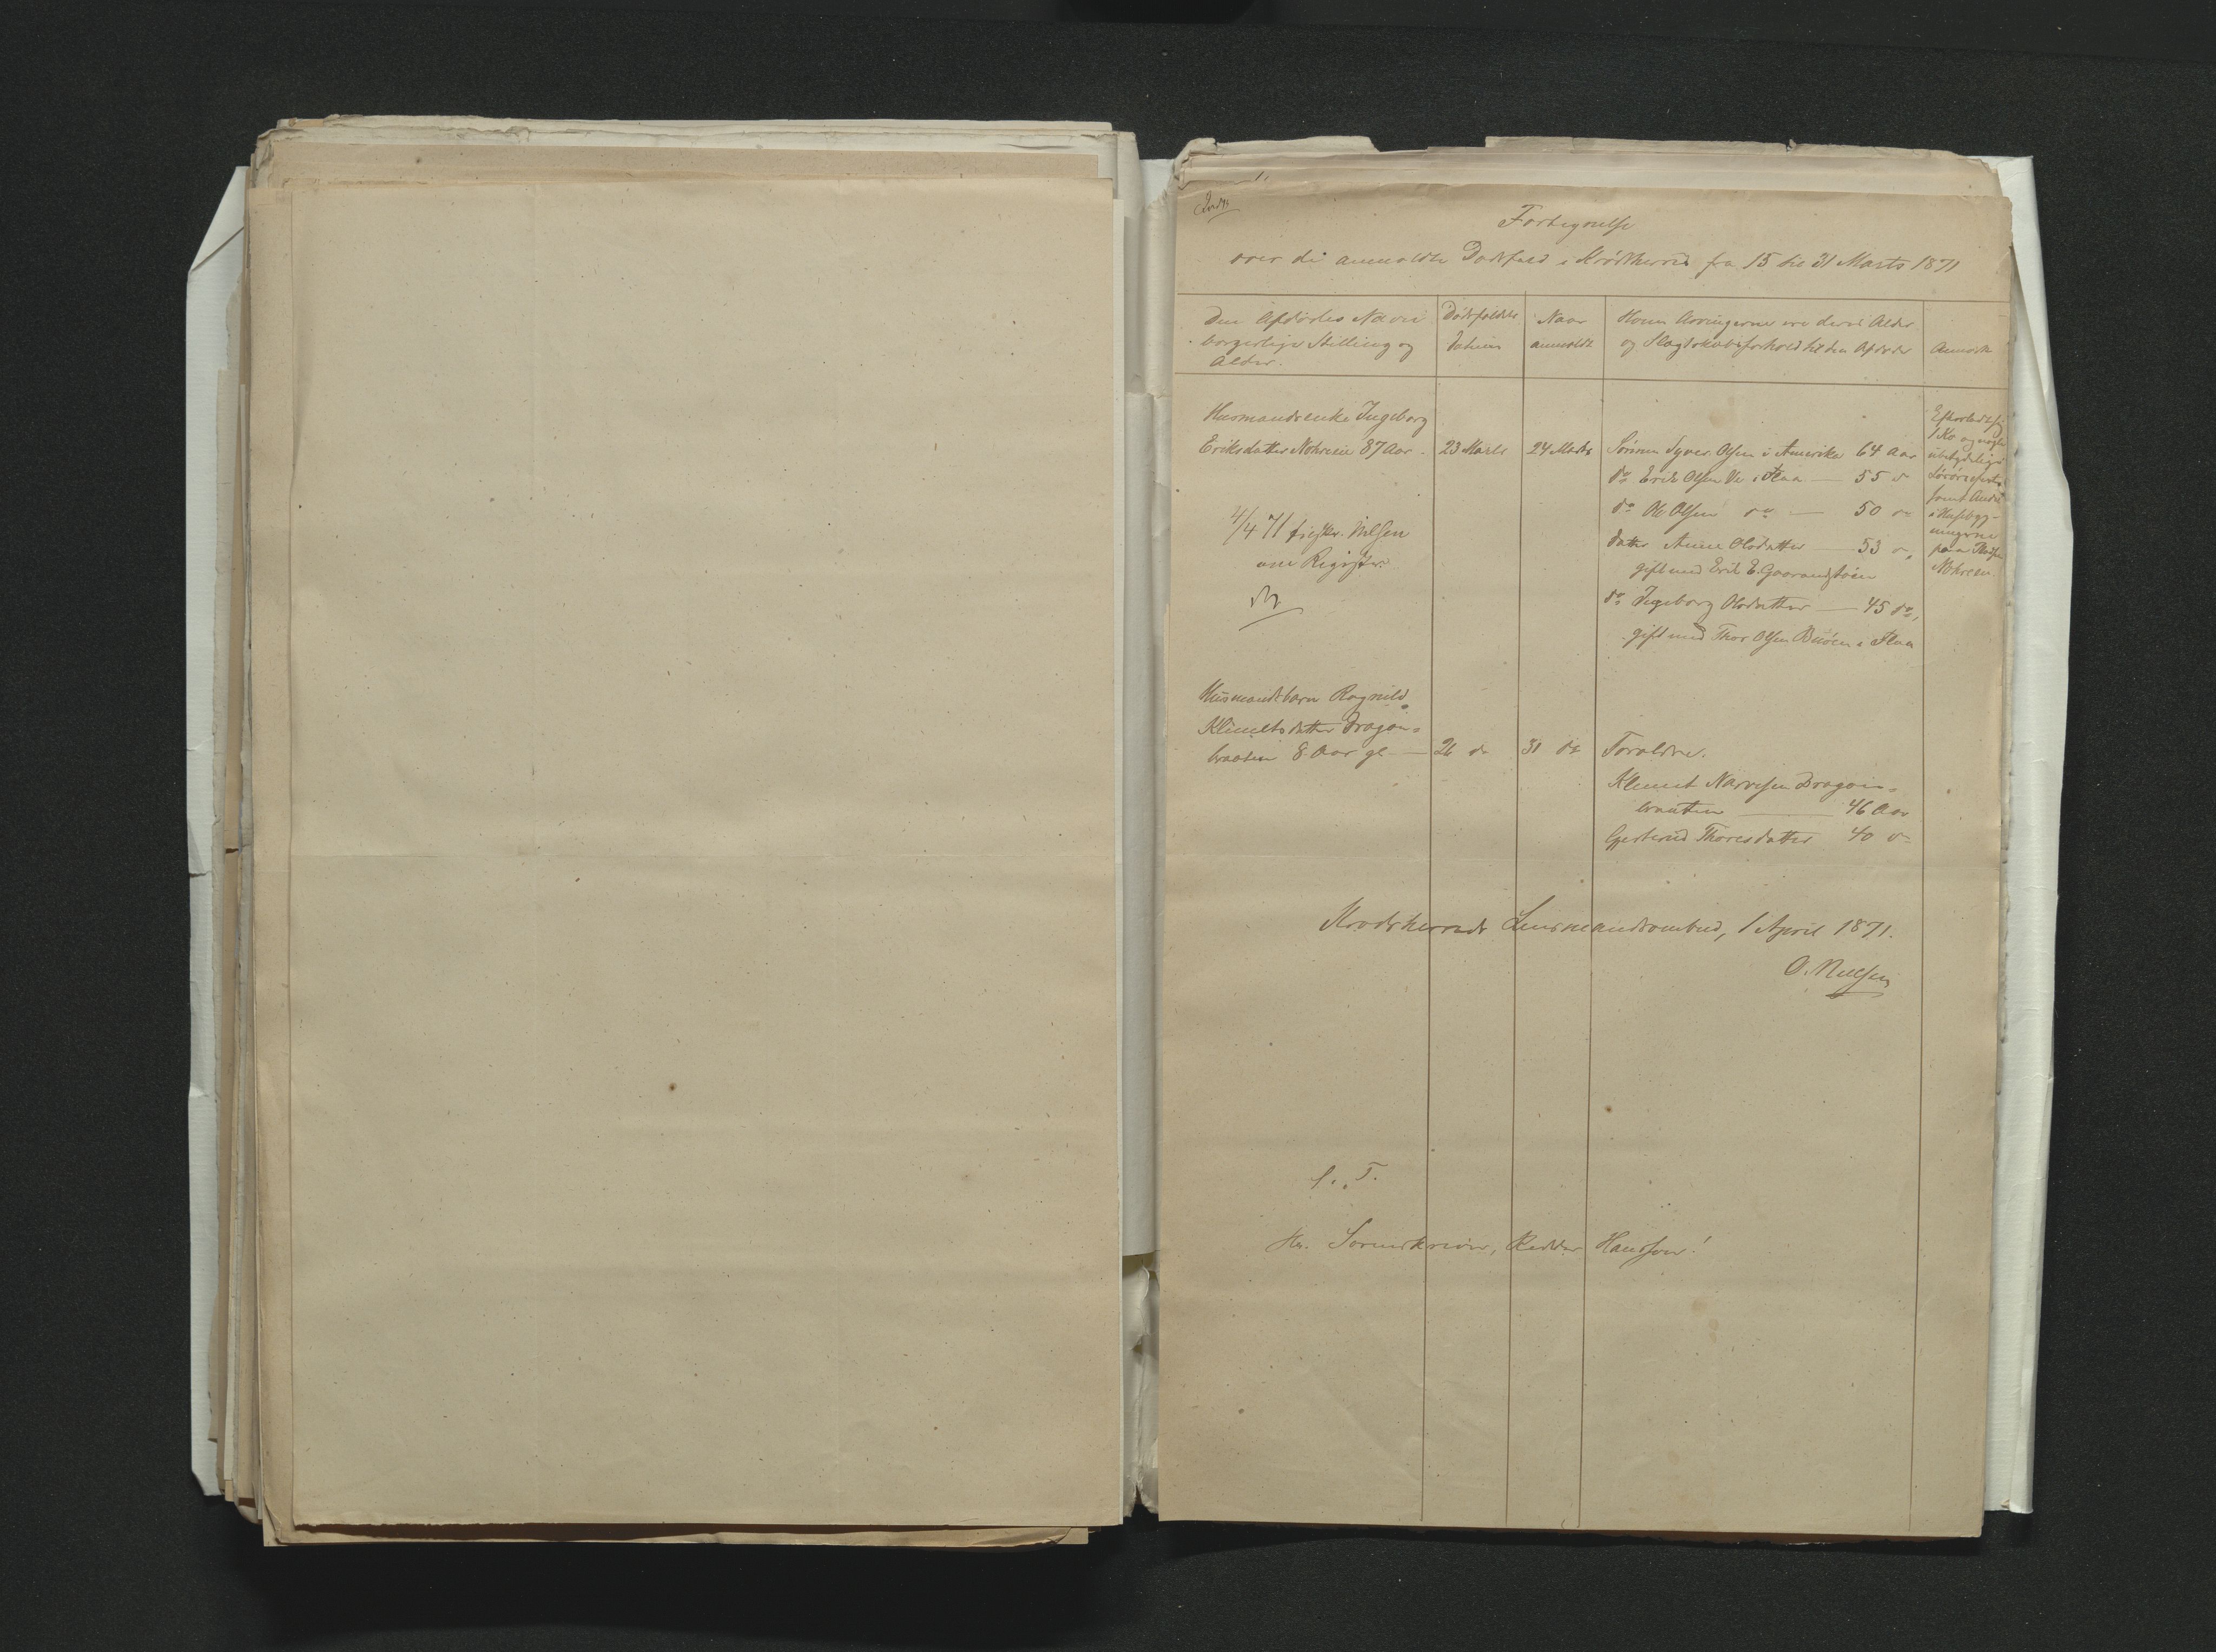 Fortegnelse
over de anmeldte Dødsfald i Krødsherred fra 15 til 31 Marts 1871
Den Afdødes Navn
borgerlige Stilling og
Alder.
Dødsfaldets
Datum
Naar
anmeldt
Hvem Arvingerne ere deres Alder
og Slægtskabsforhold til den Afdøde
Anmærk
Husmandsenke Ingeborg
Eriksdatter Nohreeie 87 Aar.
23 Marts
24 Marts
Sønnen Syver Olsen i Amerika 64 Aar
do Erik Olsen Ve i Flaa — 55 do
do Ole Olsen do — 50 do
Datter Anne Olsdatter — 53 do,
gift med Erik E. Gaarandstøen
do Ingeborg Olsdatter — 45 do,
gift med Thor Olsen Buøen i Flaa
Efterladt sig
1 Ko og nogle
ubetydelige
Løsøreeffecter
samt Andel
i Husebyg-
ningerne
paa Pladsen
Nohreeie
4/4 71 Nilsen
om Registr.
Husmandsbarn Ragnild
Klemetsdatter Dragon=
braaten 8 Aar gl —
26 do
31 do
Forældre.
Klemet Narvesen Dragon=
braaten — 46 Aar
Gjertrud Thoresdatter 40 do
Krødsherreds Lensmandsombud, 1 April 1871.
O. Nilsen
S. T.
Hr. Sorenskriver, Ridder Hansson!